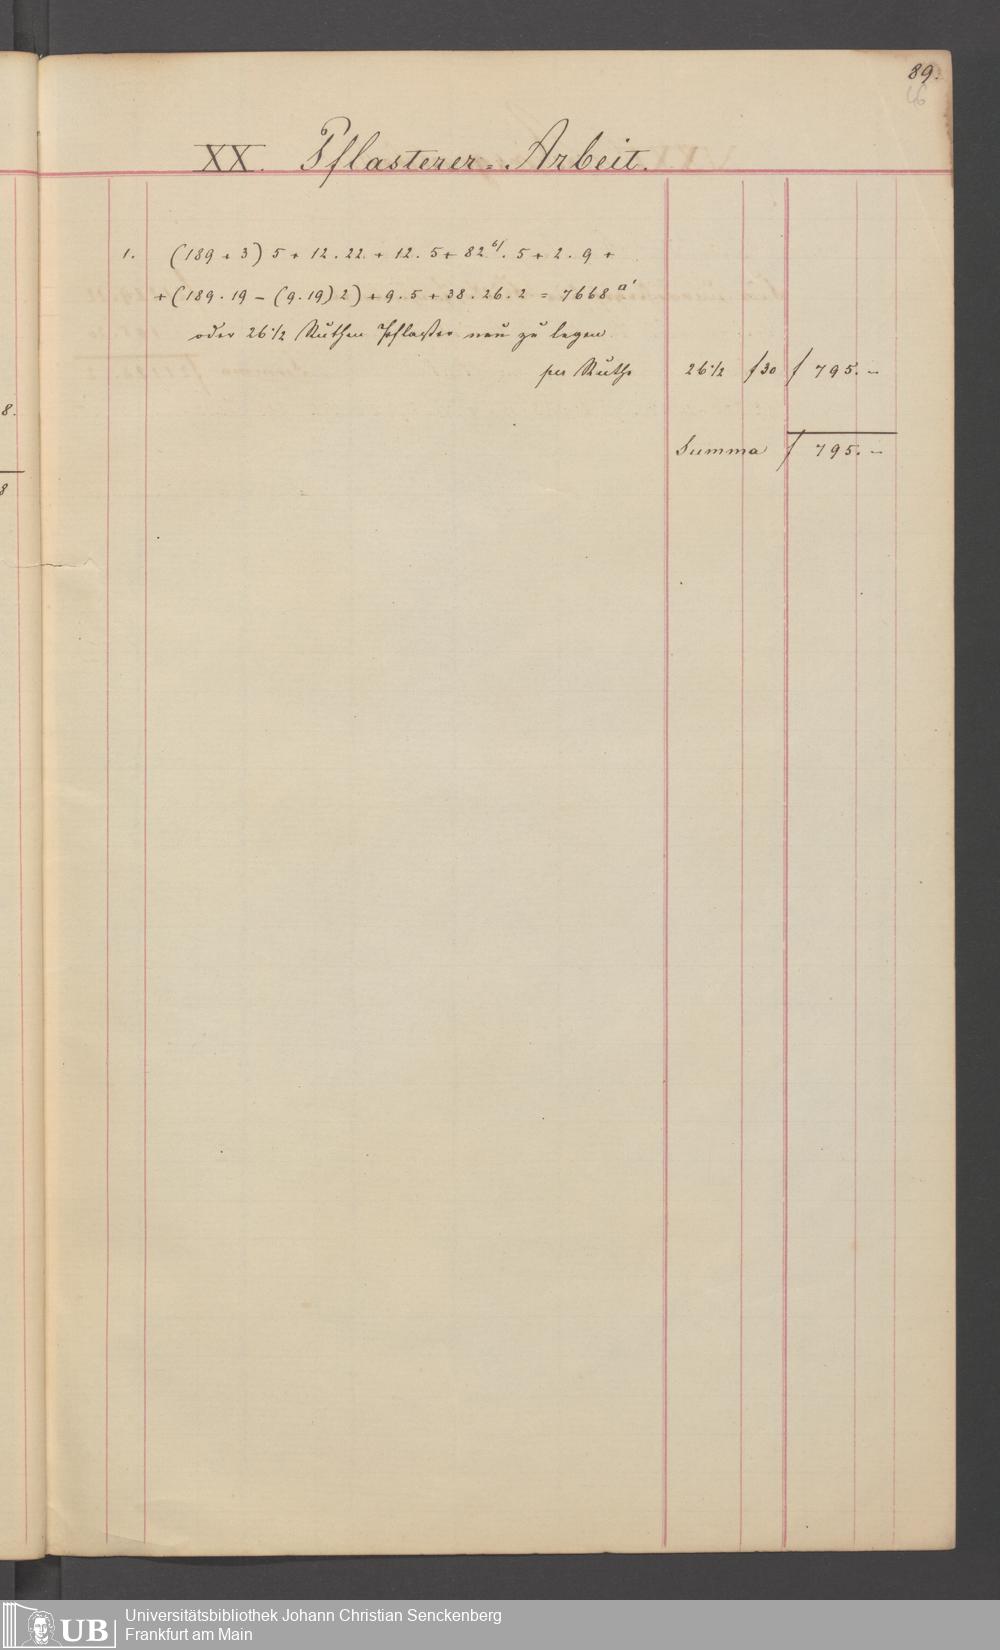 89.
46
XX. Pflasterer-Arbeit.
1. (189 + 3) 5 + 12 . 22 + 12 . 5 + 82 6/ . 5 + 2 . 9 +
+ (189 . 19 - (9 . 19) 2) + 9 . 5 + 38 . 26 . 2 = 7668 □'
oder 26 1/2 Ruthen Pflaster neu zu legen
per Ruthe 26 1/2 f 30 f 795. -
8.
Summa f 795. -
8
UB Universitätsbibliothek Johann Christian Senckenberg
Frankfurt am Main